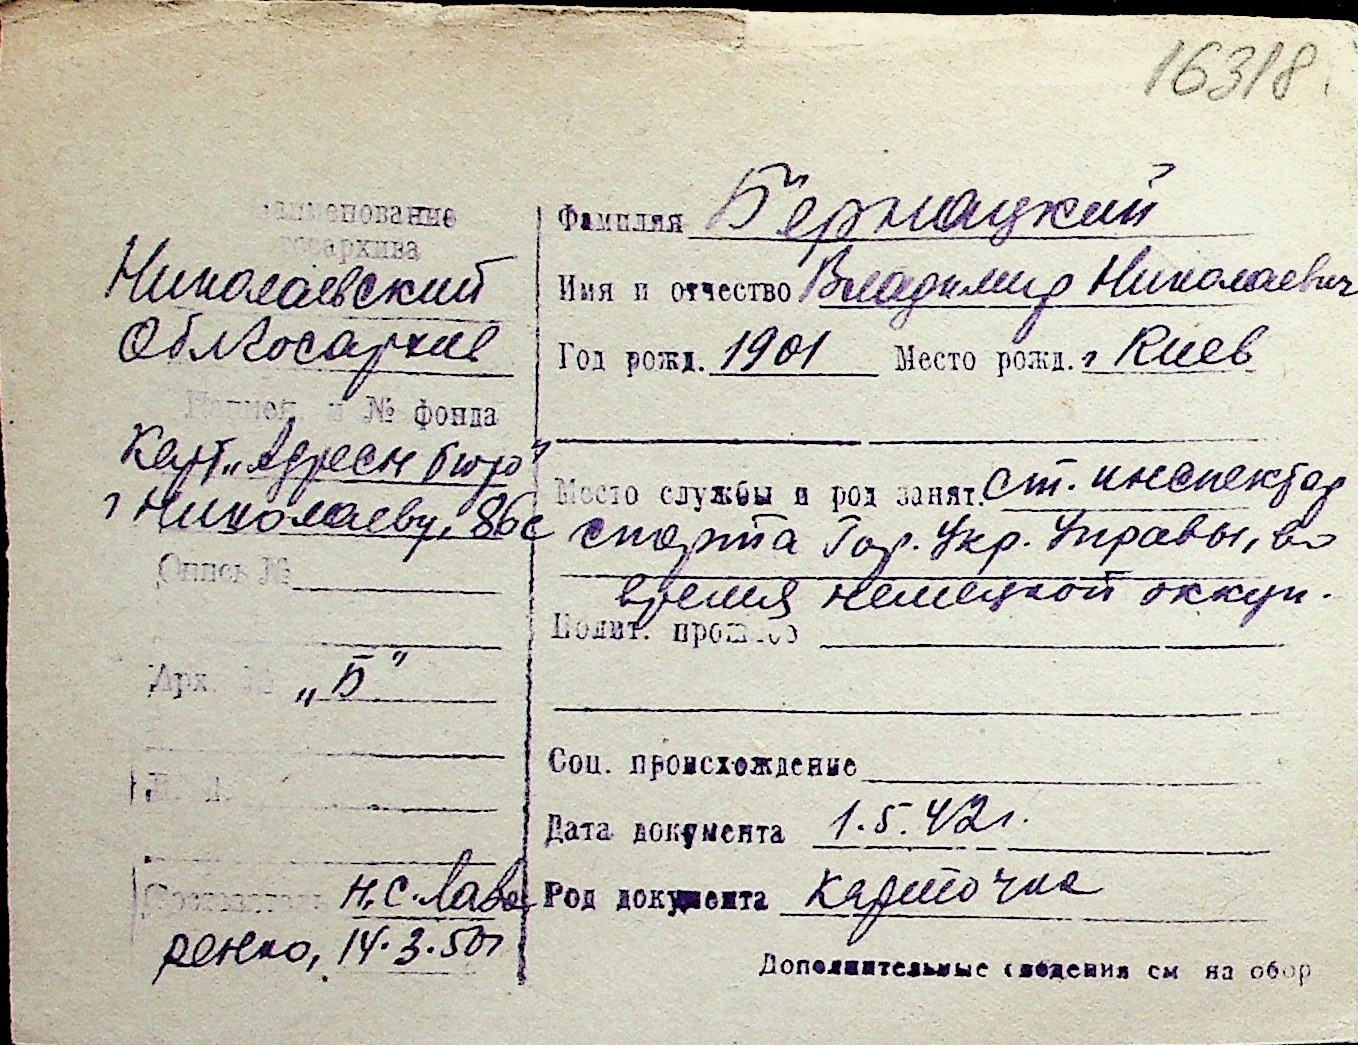 16318.
Наименование
госархива
Николаевский
Облгосархив
и № фонда
Карт. „Адресн бюро"
г Николаеву, 86с
Опись №
Арх. № „Б"
Составитель Н.С. Лавре
ренко, 14.3.50г
Фамилия Бернацкий
Имя и отчество Владимир Николаевич
Год рожд. 1901 Место рожд. г Киев
Место службы и род занят. ст. инспектор
спорта Гор. Укр. Управы, во
время немецкой оккуп.
Полит. прошлое
Соц. происхождение
Дата документа 1.5.42г.
Род документа карточка
Дополнительные сведения см на обор